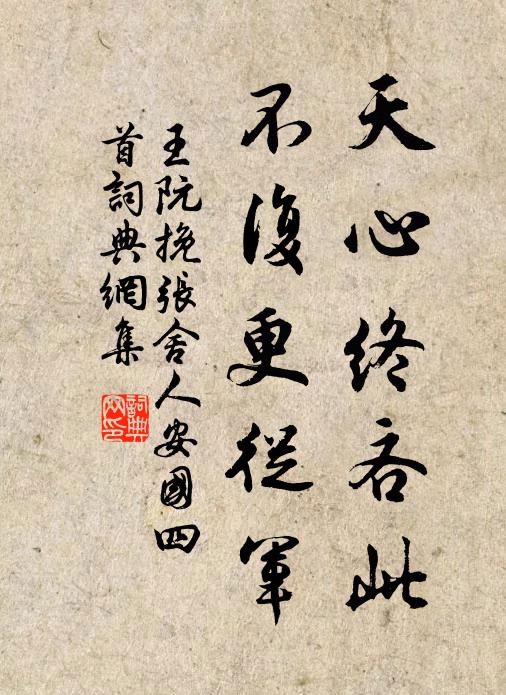 天心終吝此
不復更從軍
王阮挽張舍人安國四
首詞典網集
詞典網印